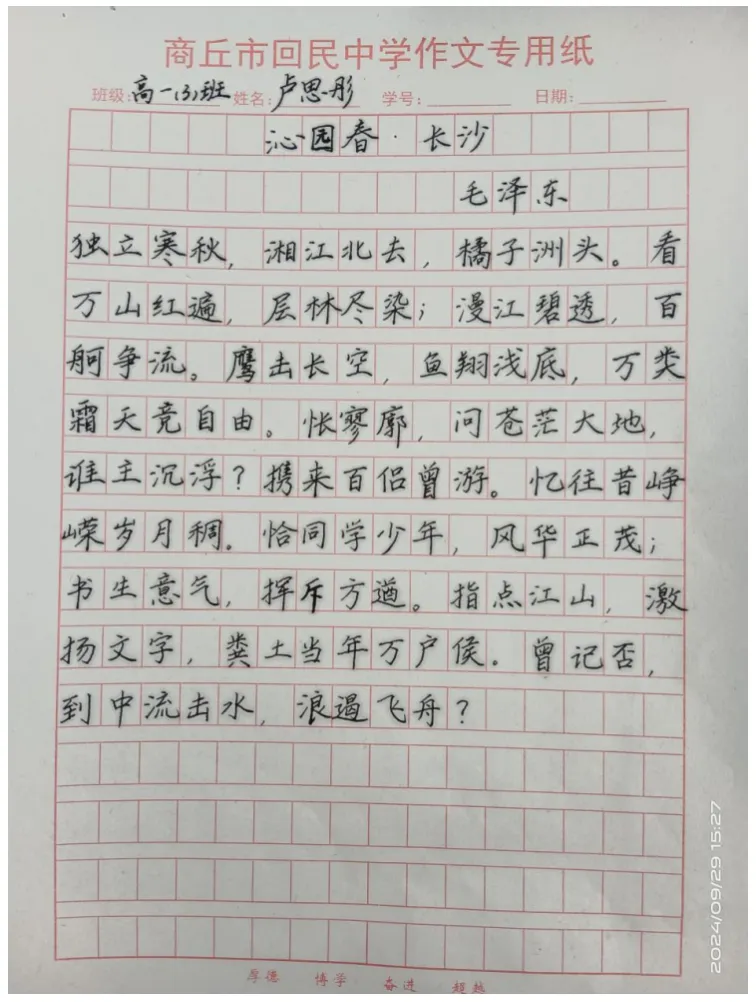 商丘市回民中学作文专用纸
班级:高一(3)班 姓名:卢思彤 学号: 日期:
沁园春·长沙
毛泽东
独立寒秋，湘江北去，橘子洲头。看
万山红遍，层林尽染；漫江碧透，百
舸争流。鹰击长空，鱼翔浅底，万类
霜天竞自由。怅寥廓，问苍茫大地，
谁主沉浮？携来百侣曾游。忆往昔峥
嵘岁月稠。恰同学少年，风华正茂；
书生意气，挥斥方遒。指点江山，激
扬文字，粪土当年万户侯。曾记否，
到中流击水，浪遏飞舟？
厚德 博学 奋进 超越
2024/09/29 15:27